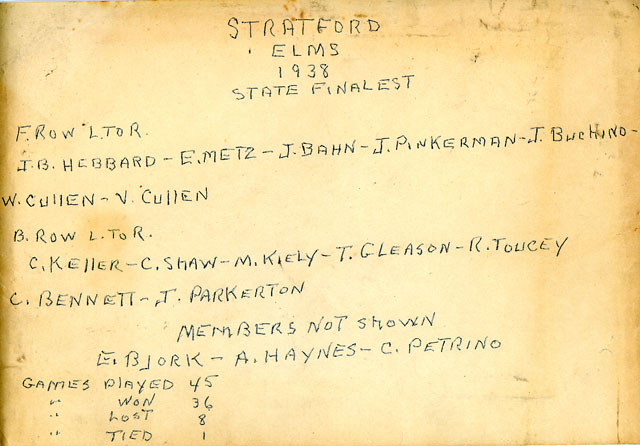 STRATFORD
ELMS
1938
STATE FINALEST
F. ROW L. TO R.
J.B. HEBBARD - E. METZ - J. BAHN - J. PINKERMAN - J. BUCHINO -
W. CULLEN - V. CULLEN
B. ROW L. TO R.
C. KELLER - C. SHAW - M. KIELY - T. GLEASON - R. TOUCEY
C. BENNETT - J. PARKERTON
MEMBERS NOT SHOWN
E. BJORK - A. HAYNES - C. PETRINO
GAMES PLAYED 45
" WON 36
" LOST 8
" TIED 1